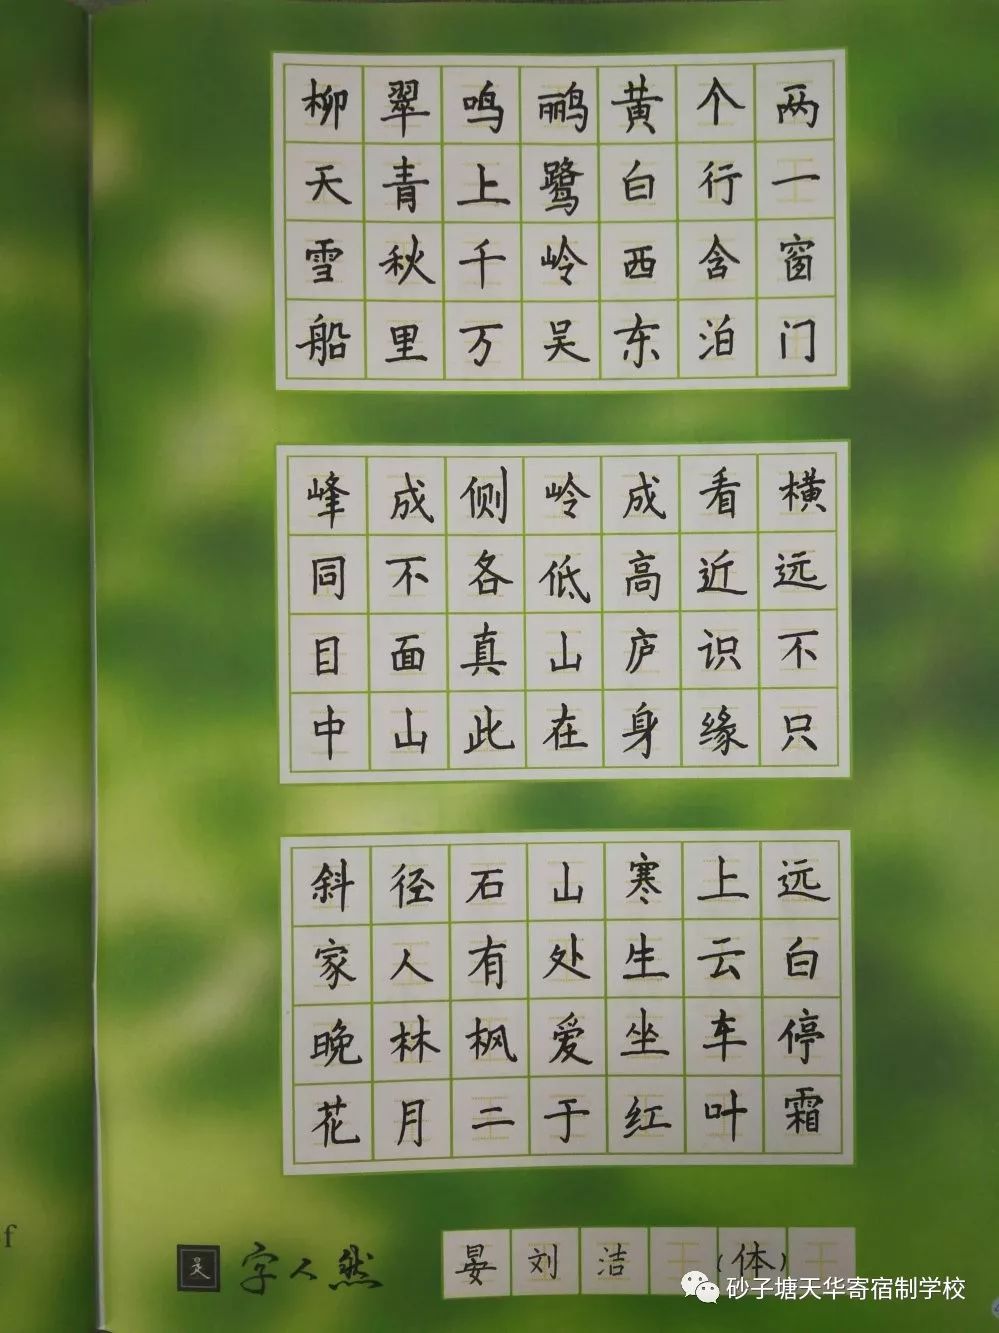 两个黄鹂鸣翠柳
一行白鹭上青天
窗含西岭千秋雪
门泊东吴万里船
横看成岭侧成峰
远近高低各不同
不识庐山真面目
只缘身在此山中
远上寒山石径斜
白云生处有人家
停车坐爱枫林晚
霜叶红于二月花
f
吴 字人然 晏刘洁（体）
砂子塘天华寄宿制学校